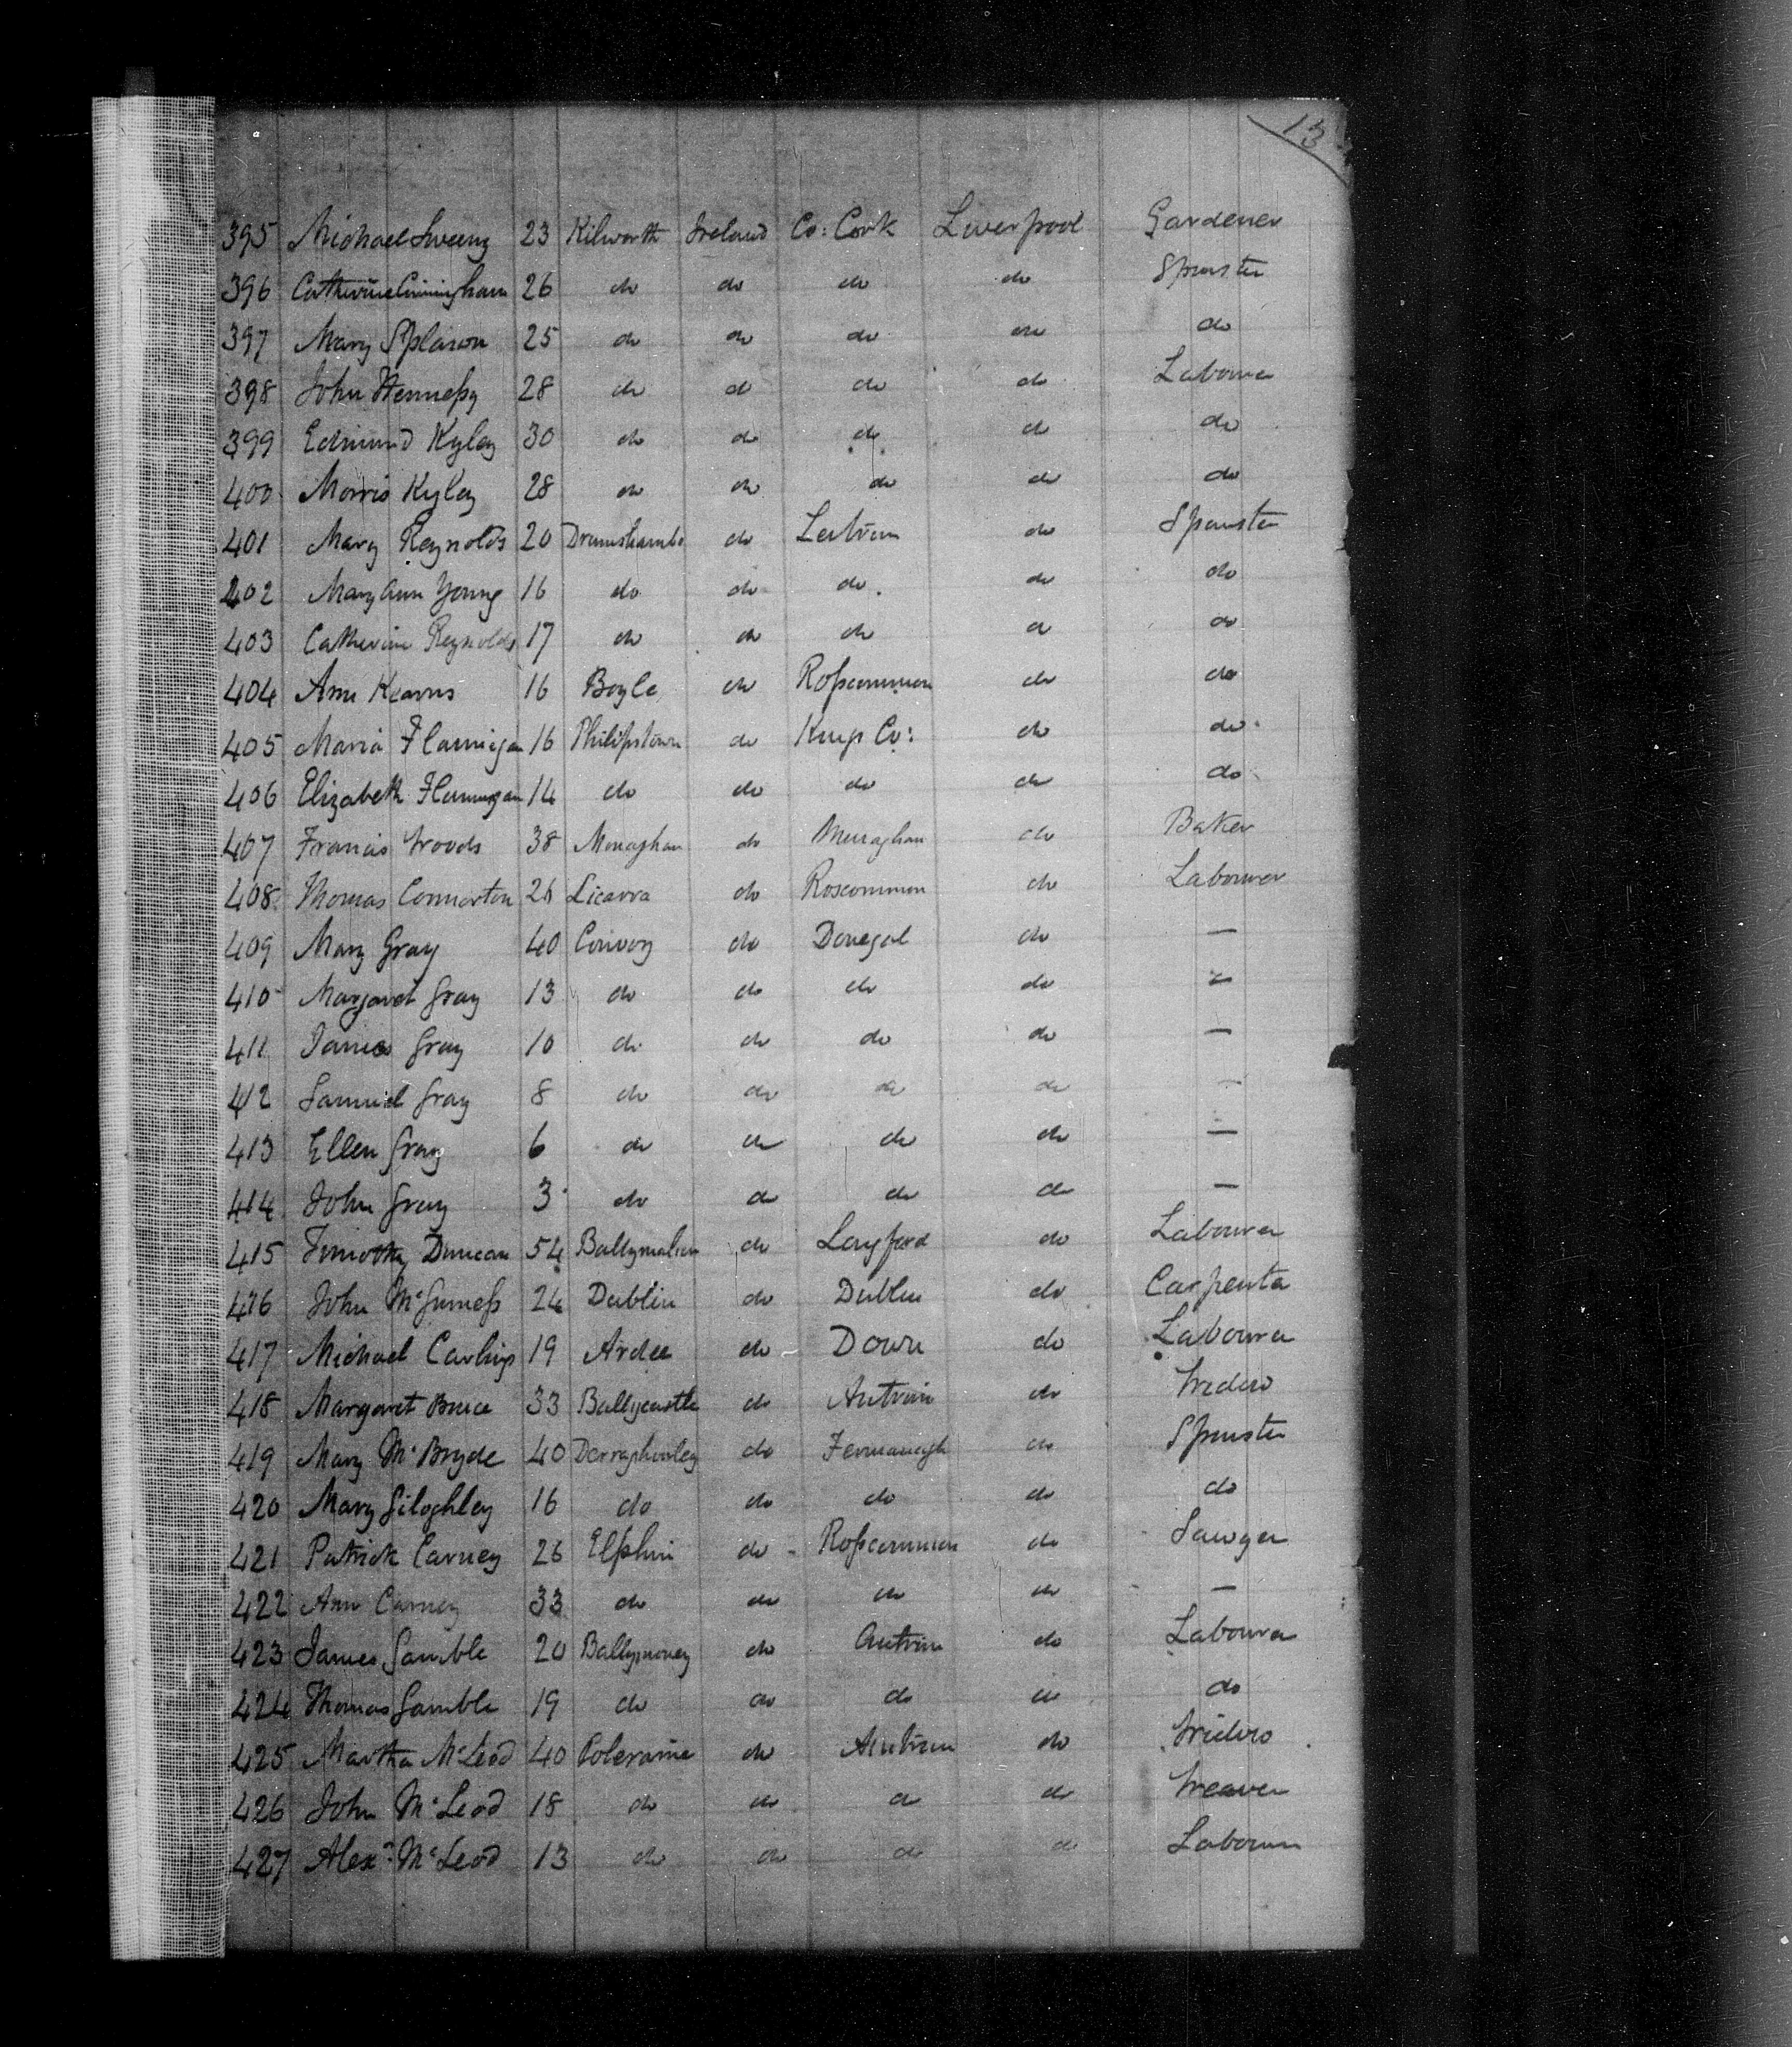 13
395 Michael Sweeny 23 Kilworth Ireland Co: Cork Liverpool Gardener
396 Catherine Cuningham 26 do do do do Spinster
397 Mary 25 do do do do do
398 John Hennessy 28 do do do do Labourer
399 Edmund Kyley 30 do do do do do
400 Morris Kyley 28 do do do do do
401 Mary Reynolds 20 Drumshambo do Leitrim do Spinster
402 Mary Ann Young 16 do do do do do
403 Catherine Reynolds 17 do do do do do
404 Ann Kearns 16 Boyle do Roscommon do do
405 Maria Flannigan 16 Philipstown do Kings Co: do do
406 Elizabeth Flannigan 14 do do do do do
407 Francis Woods 38 Monaghan do Monaghan do Baker
408 Thomas Connorton 26 do Roscommon do Labourer
409 Mary Gray 40 Convoy do Donegal do —
410 Margaret Gray 13 do do do do —
411 James Gray 10 do do do do —
412 Samuel Gray 8 do do do do —
413 Ellen Gray 6 do do do do —
414 John Gray 3 do do do do —
415 Timothy Duncan 54 Ballymahon do Longford do Labourer
416 John McGuiness 24 Dublin do Dublin do Carpenter
417 Michael 19 Ardee do Down do Labourer
418 Margaret Bruce 33 Ballycastle do Antrim do Widow
419 Mary McBryde 40 do Fermanagh do Spinster
420 Mary Giloghley 16 do do do do do
421 Patrick Carney 26 Elphin do Roscommon do Sawyer
422 Ann Carney 33 do do do do —
423 James Gamble 20 Ballymoney do Antrim do Labourer
424 Thomas Gamble 19 do do do do do
425 Martha McLeod 40 Coleraine do Antrim do Widow
426 John McLeod 18 do do do do Weaver
427 Alexr McLeod 13 do do do do Labourer